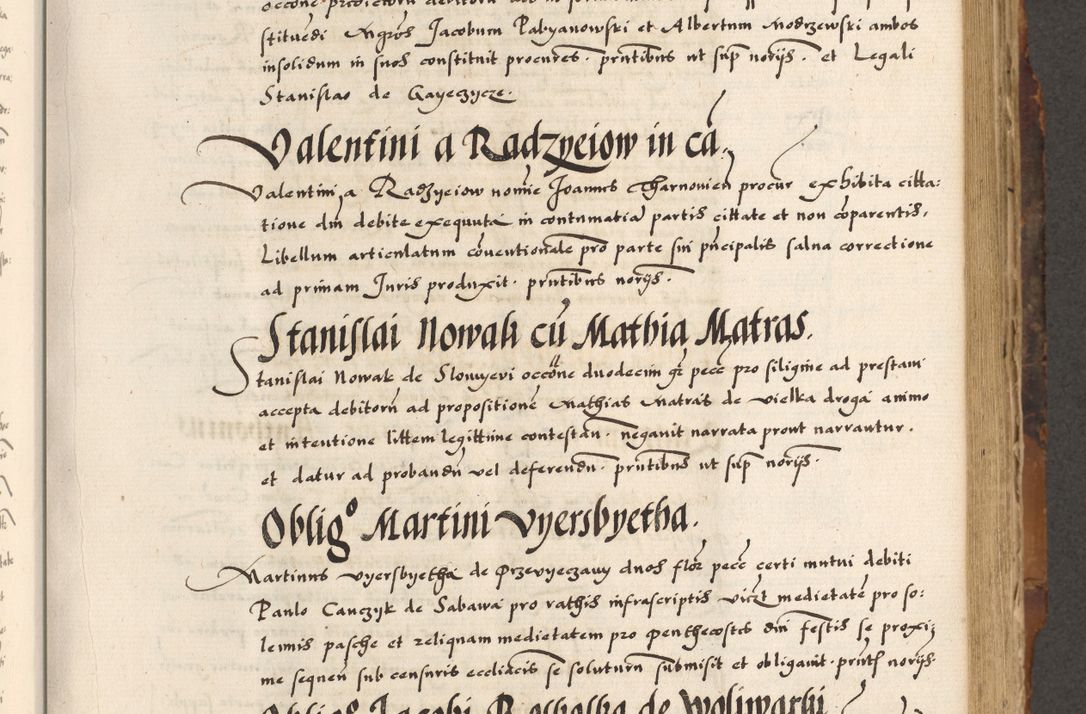 stituedi Mgros Jacobum Pabyanowski et Albertum Modrzewski ambos
insolidum in suos constituit procures. pntibus ut sup norijs. et Legali
Stanislao de Gayeczycze.
Valentini a Radzyeiow in cã.
Valentini a Radzyeiow nomie Joannis Tharnowien procur exhibita citta:
tione dm debite exequuta in contumatia partis cittate et non comparentis.
Libellum articulatum cõuentionale pro parte sui pncipalis salua correctione
ad primam Juris produxit. pntibus norijs.
Stanislai Nowak cũ Mathia Matras.
Stanislai Nowak de Slomyevi occõne duodecim gr pecc pro siligine ad prestam
accepta debitorũ ad propositionẽ Mathias Matras de Vielka droga animo
et intentione littem legittime contestan. negauit narrata prout narrantur.
et datur ad probandũ vel deferendũ. pntibus ut sup norijs.
Oblig° Martini Vyersbyetha.
Martinus Vyersbyetha de Przevyeczany duos flor pecc certi mutui debiti
Paulo Canczyk de Sabawa pro rathis infrascriptis vict medietatẽ pro so:
lemnis pasche et reliquam medietatem pro penthecostes dni festis se proxi:
me sequen sub censuris eccliacis se soluturũ submisit et obligauit. pntf norijs.
Oblig° Jacobi de Woliwarhi